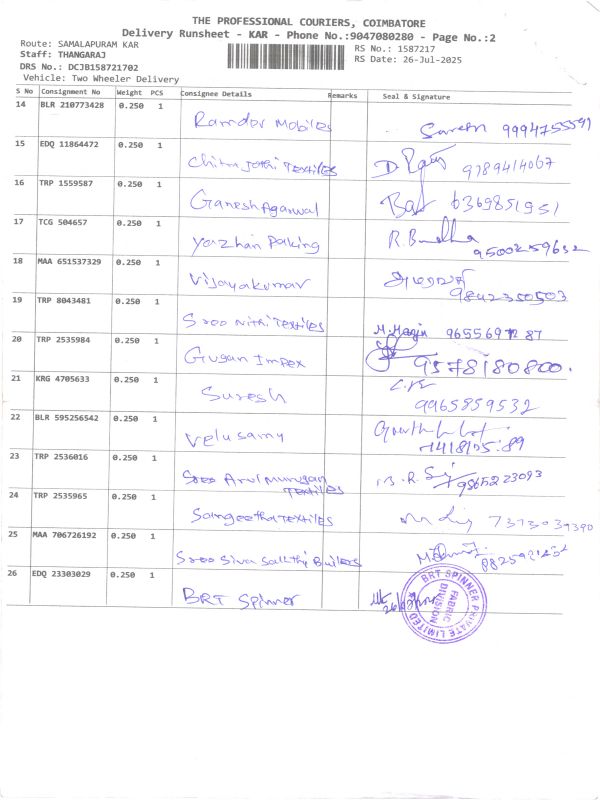 THE PROFESSIONAL COURIERS, COIMBATORE
Delivery Runsheet - KAR - Phone No.:9047080280 - Page No.:2
Route: SAMALAPURAM KAR
Staff: THANGARAJ
DRS No.: DCJB158721702
Vehicle: Two Wheeler Delivery
RS No.: 1587217
RS Date: 26-Jul-2025
S No Consignment No Weight PCS Consignee Details Remarks Seal & Signature
14 BLR 210773428 0.250 1
Ramdev Mobiles 9994755591
15 EDQ 11864472 0.250 1
Chitra Jothi Textiles 9789414067
16 TRP 1559587 0.250 1
Ganesh Agarwal 6369851951
17 TCG 504657 0.250 1
Yazhan Packing 9500259632
18 MAA 651537329 0.250 1
Vijayakumar 9842350503
19 TRP 8043481 0.250 1
Sree Nithi Textiles
20 TRP 2535984 0.250 1
Gugan Impex 9578180800.
21 KRG 4705633 0.250 1
Suresh 9965859532
22 BLR 595256542 0.250 1
Velusamy
23 TRP 2536016 0.250 1
Sree Arulmurugan
Textiles 9865223093
24 TRP 2535965 0.250 1
Sangeetha Textiles 7373039390
25 MAA 706726192 0.250 1
Sree Siva Sakthi Builders
26 EDQ 23303029 0.250 1
BRT Spinner
BRT SPINNER PRIVATE LIMITED
FABRIC
DIVISION